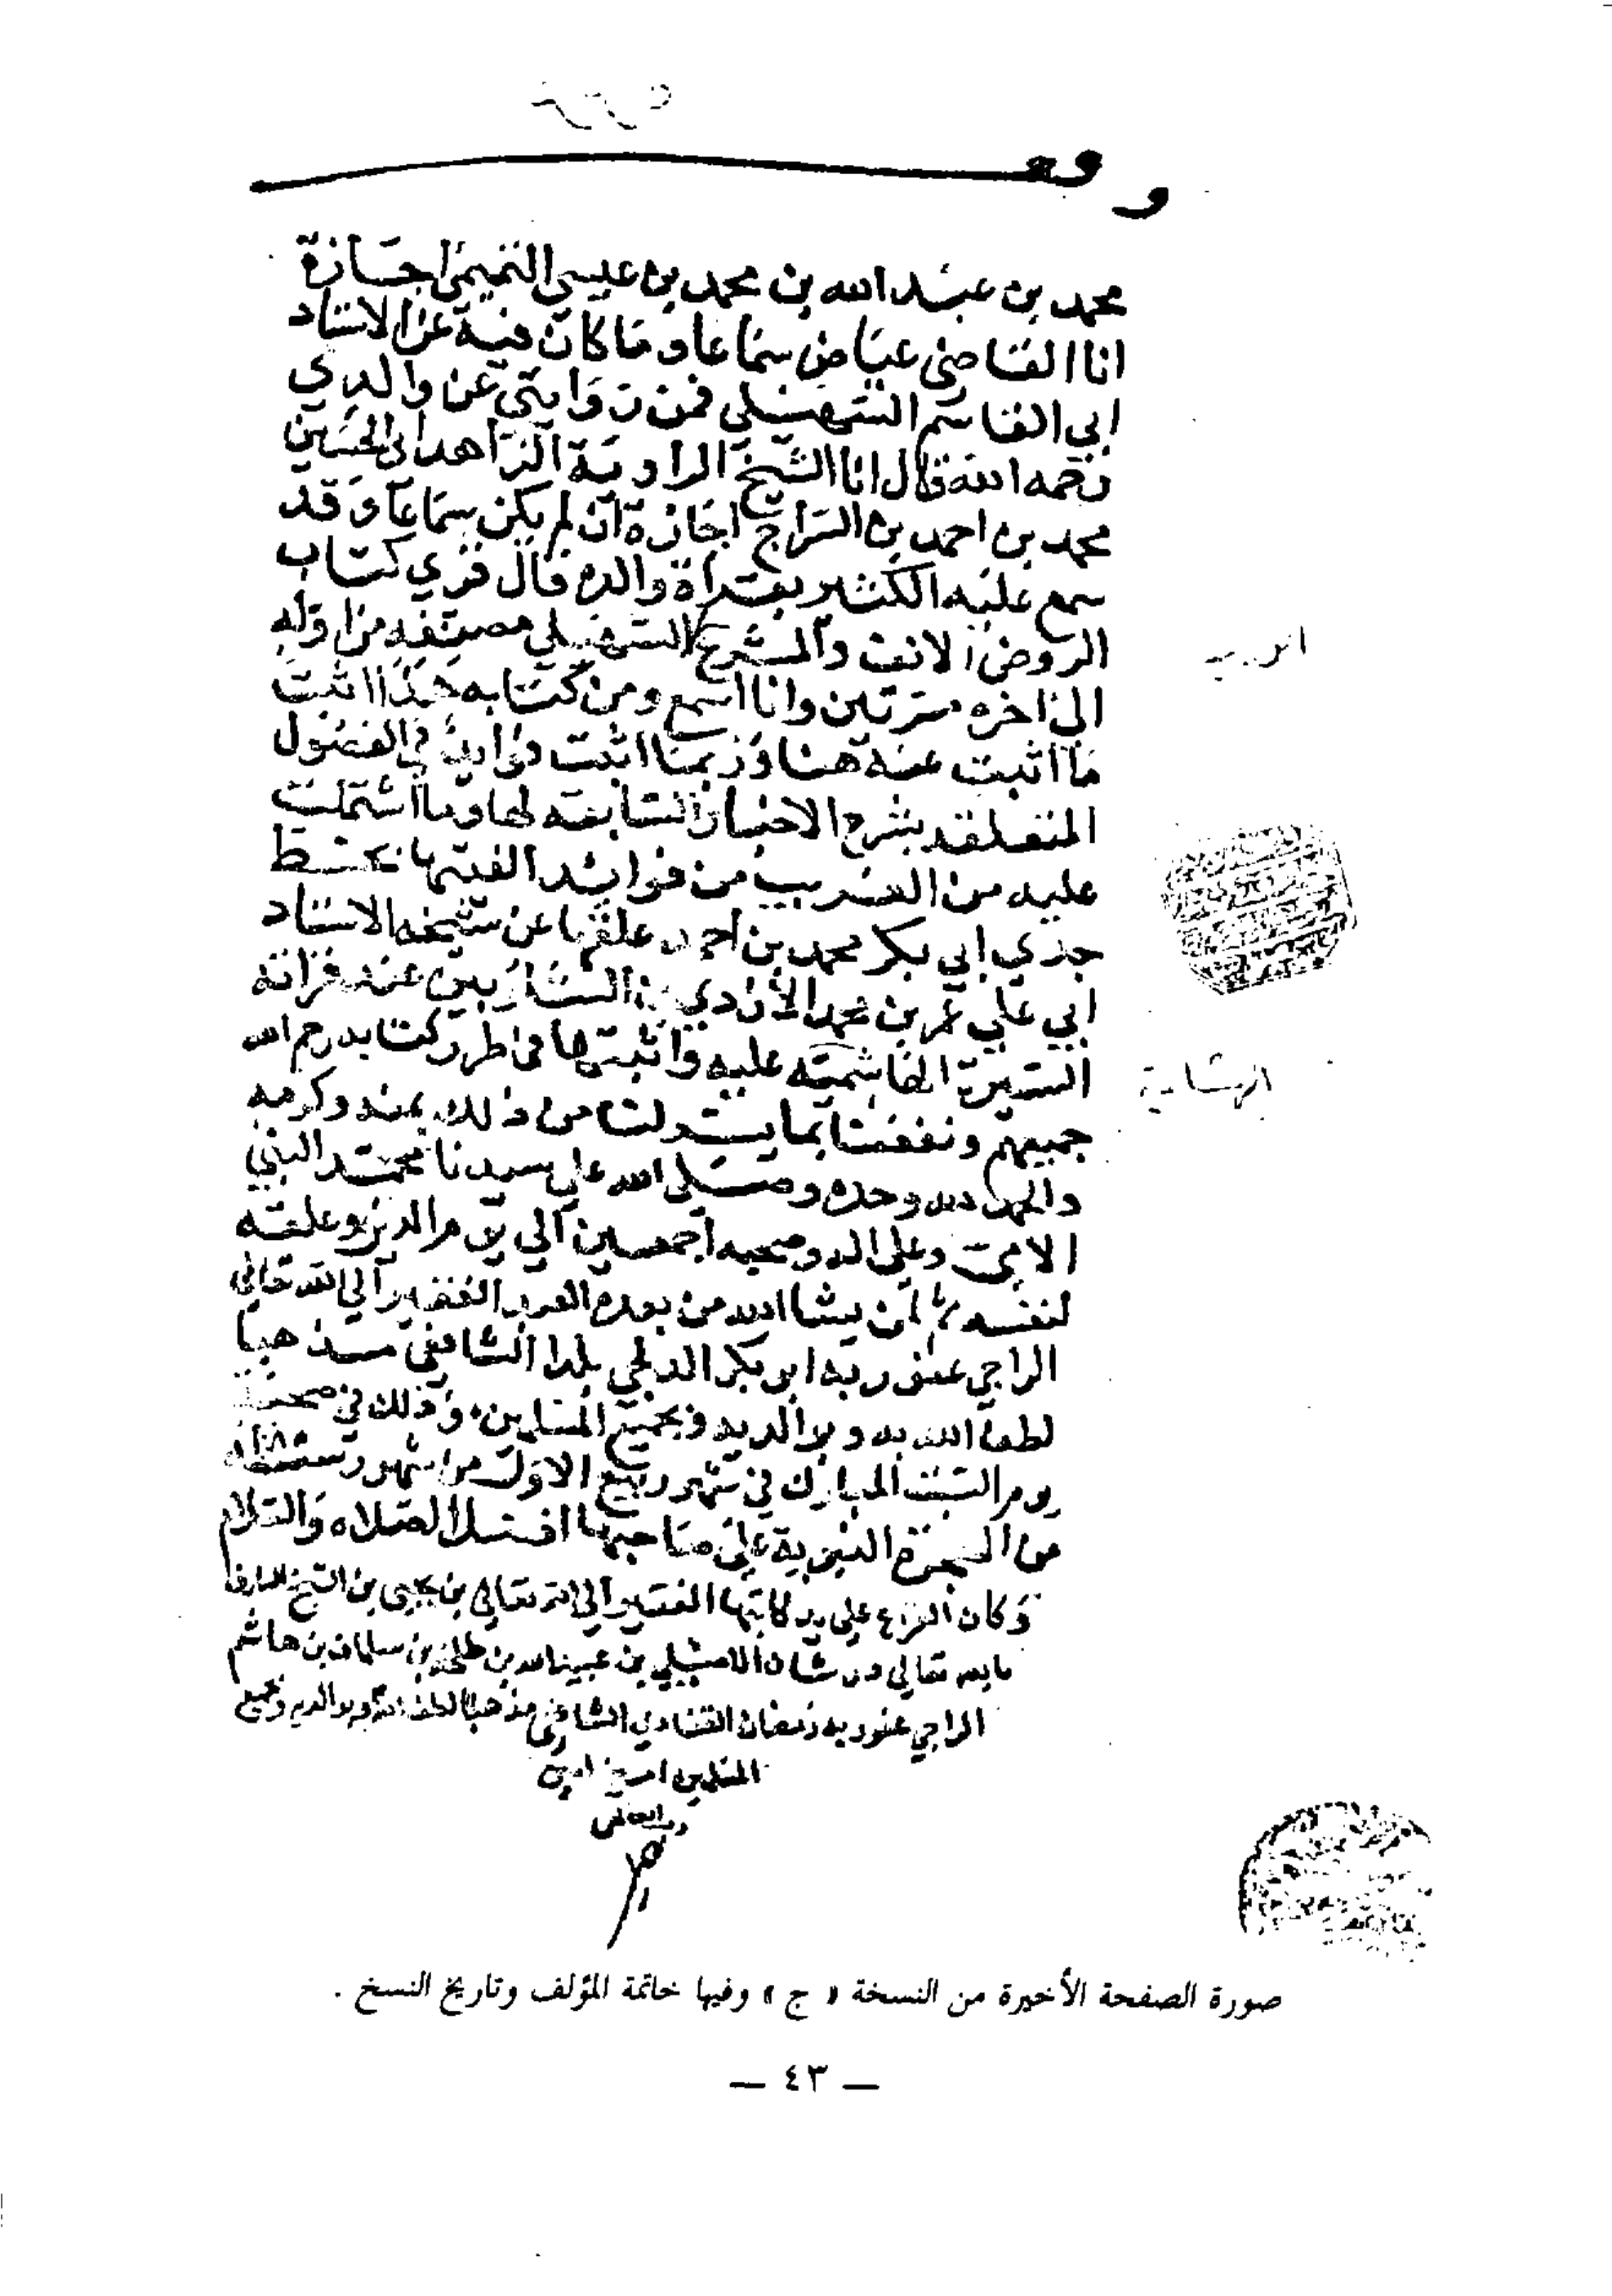 محمد بن عبد الله بن محمد بن عيسي التميمي اجازة
انا القاضي عياض سماعا وما كان فيه عن الاستاد
ابي القاسم السهيلي فمن روايتي عن والدي
رحمه الله قال انا الشيخ الراوية الزاهد ابي الحسين
محمد بن احمد بن السراج اجازة ان لم يكن سماعا وقد
سمع عليه الكثير بقراة والده قال قري كتاب
الروض الانف والمشرع للسهيلي مصنفه من اوله
الي اخره مرتين وانا اسمع ومن كتابه هذا اثبت
ما اثبت عنه هنا وربما اثبت فوايد في الفصول
المتعلقه بشرح الاخبار السابقه لها وما اشتملت
عليه من الغريب من فوايد الفيتها بخط
جدي ابي بكر محمد بن احمد علقها عن شيخه الاستاد
ابي علي عمر بن محمد الأزدي بن الشلوبين عند قراته
السيرة الهاشميه عليه واثبتها في طرر كتابه رحم الله
جميعهم ونفعنا بما يسر لنا من ذلك بمنه وكرمه
والحمد لله وحده وصلي الله علي سيدنا محمد النبي
الامي وعلي اله وصحبه اجمعين الي يوم الدين وعلقه
لنفسه ثم لمن يشا الله من بعده العبد الفقير الي الله تعالي
الراجي عفو ربه ابو بكر الدلجي بلدا الشافعي مذهبا
لطف الله به وبوالديه وبجميع المسلمين وذلك في
يوم السبت المبارك في شهر ربيع الاول من شهور سنة
من الهجرة النبوية علي صاحبها افضل الصلاه والسلام
وكان الفراغ علي يد كاتبها الفقير الي الله تعالي بن يحيي بن الشيخ العارف
بالله تعالي بن عبيد الله بن طلحة بن سلمان بن هاشم
الراجي عفو ربه رمضان الشافعي مذهبا لطف الله به وبوالديه وبجميع
المسلمين امين امين
رب العالمين
صورة الصفحة الأخيرة من النسخة « ج » وفيها خاتمة المؤلف وتاريخ النسخ .
— ٤٣ —